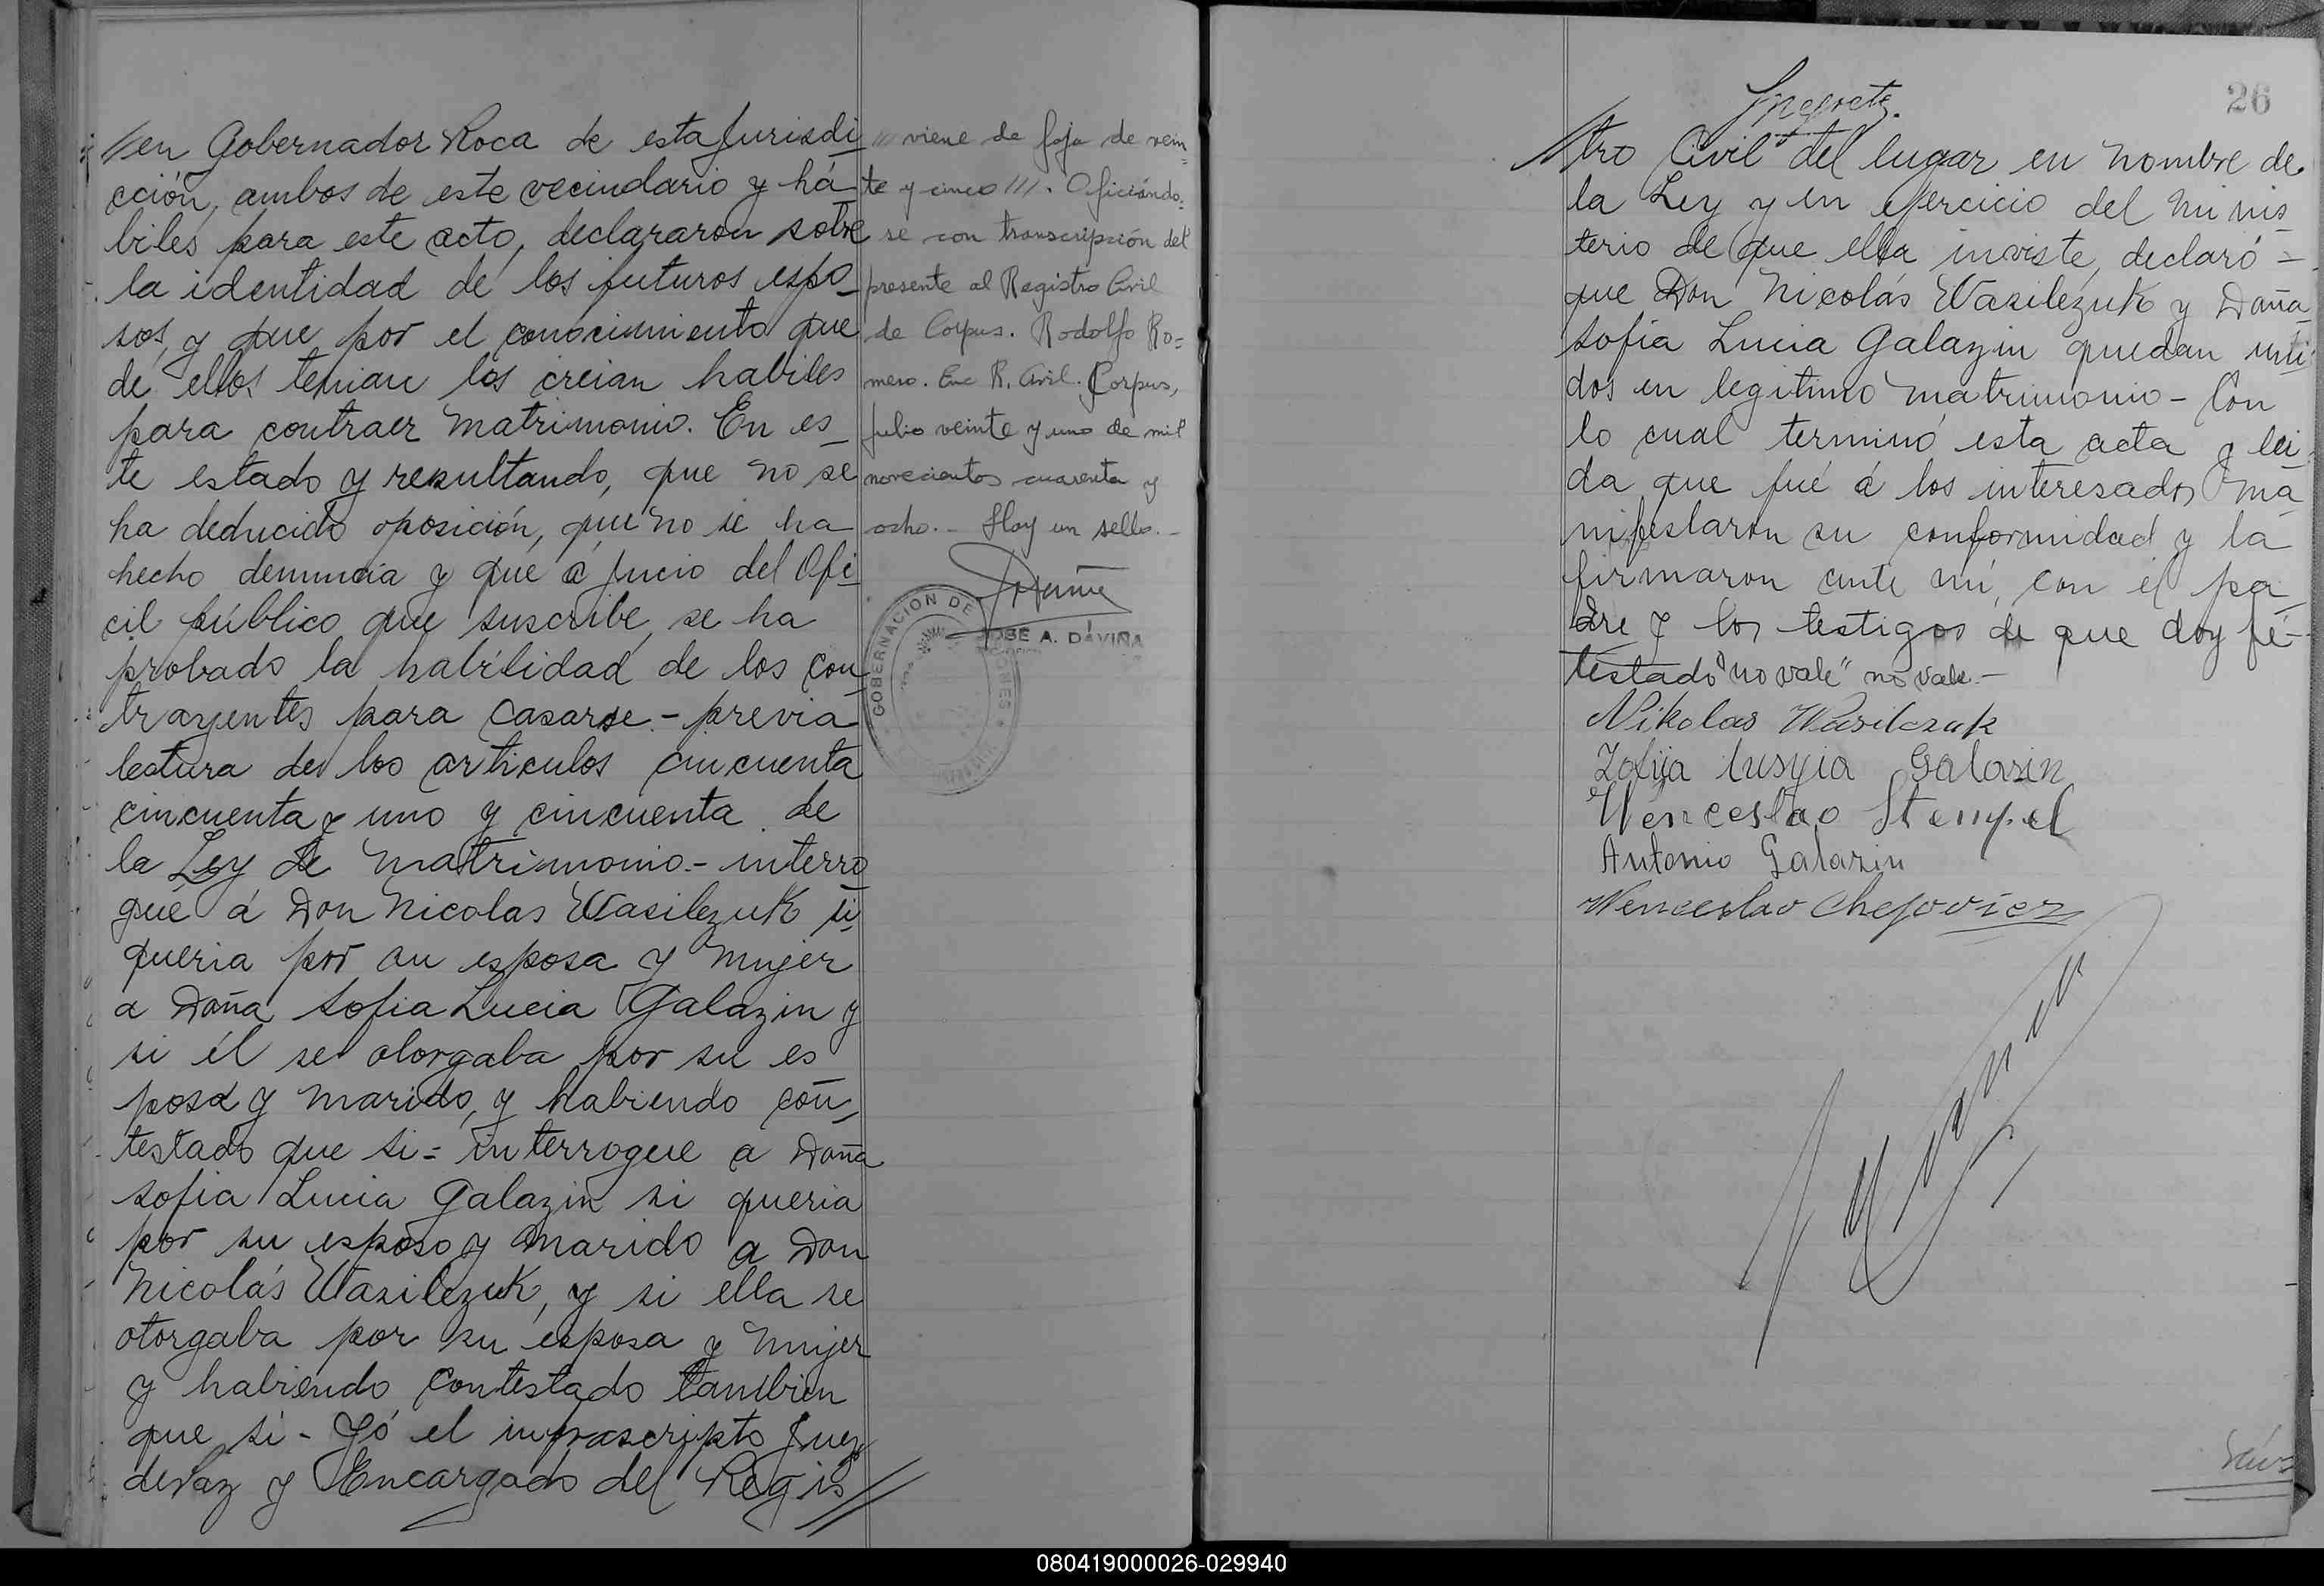 //en Gobernador Roca de esta Jurisdi
cción, ambos de este vecindario y há
biles para este acto, declararon sobre
la identidad de los futuros espo-
sos, y que por el conocimiento que
de ellos tenian los creian habiles
para contraer matrimonio. En es-
te estado y resultando, que no se
ha deducido oposición, que no se ha
hecho denuncia y que á juicio del Ofi-
cil público que suscribe, se ha
probado la habilidad de los con
trayentes para casarse.- previa
lectura de los articulos cincuenta
cincuenta y uno y cincuenta de
la Ley de matrimonio.- interro
gue á Don Nicolas Wasilezuk si
queria por su esposa y mujer
a Doña Sofia Lucia Galazin y
si él se otorgaba por su es
poso y marido, y habiendo con
testado que si = interrogue a Doña
Sofia Lucia Galazin si queria
por su esposo y marido a Don
Nicolás Wasilezuk, y si ella se
otorgaba por su esposa y mujer
y habiendo contestado tambien
que si - Yó el infrascripto Juez
de Paz y Encargado del Regis//
/// viene de foja de vein=
te y cinco ///. Oficiándo=
se con transcripción del
presente al Registro Civil
de Corpus. Rodolfo Ro=
mero. Enc R. Civil. Corpus,
Julio veinte y uno de mil
novecientos cuarenta y
ocho.- Hay un sello.-
GOBERNACION DE
JOSE A. DAVIÑA
26
//tro Civil del lugar en nombre de
la Ley y en ejercicio del minis
terio de que ella inviste, declaró -
que Don Nicolás Wasilezuk y Doña
Sofia Lucia Galazin quedan uni
dos en legitimo matrimonio - Con
lo cual terminó esta acta y lei
da que fué á los interesados ma
nifestaron su conformidad y la
firmaron ante mi, con el pa
dre y los testigos de que doy fé -
testado "no vale" no vale.-
Nikolas Wasilczuk
Zofija Lusyia Galasin
Wenceslao Stempel
Antonio Galazin
Wenceslao Chejovicz
080419000026-029940